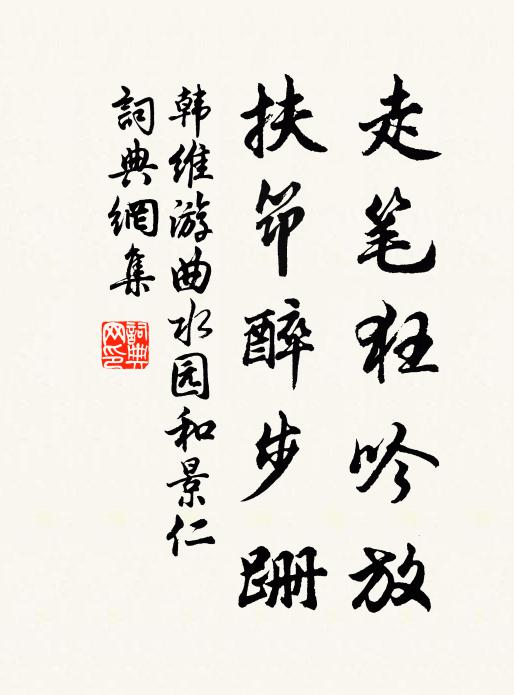 走笔狂吟放
扶筇醉步跚
韩维游曲水园和景仁
詞典網集
詞典網印